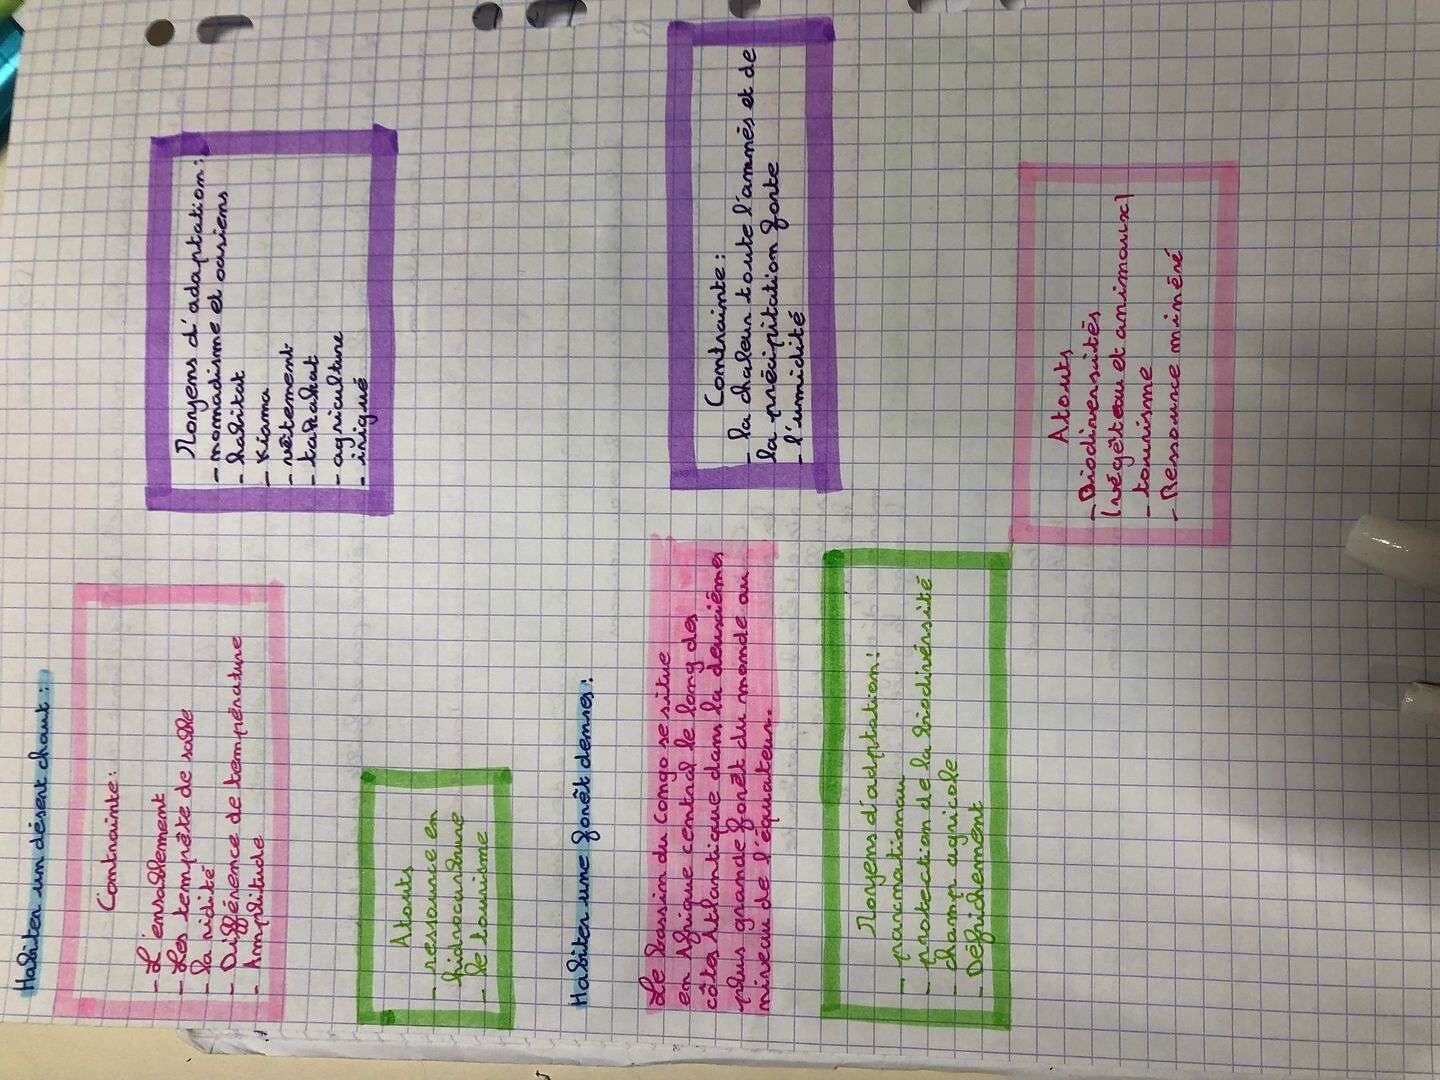 Habiter un désert chaut :
Contrainte :
- L'ensablement
- Les tempête de sable
- la ridité
- Différence de température
- Amplitude
Moyens d'adaptation :
- nomadisme et oasiens
- habitat
- Kiama
- vêtement
- agriculture
- irigué
Atouts
- ressource en
hidrocurbure
- le tourisme
Habiter une forêt denses :
Le bassin du Congo se situe
en Afrique central le long des
côtes Atlantique dans la deuxièmes
plus grande forêt du monde au
niveau de l'équateur.
Contrainte :
- la chaleur toute l'annnés et de
la précipitation forte
- l'umidité
Moyens d'adptation :
- protection de la biodivérsité
- champ agricole
- Défridement
Atouts
- Biodiversités
(végêtau et animaux)
- tourisme
- Ressource minéré